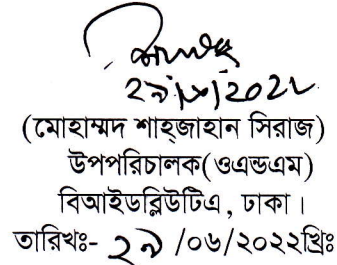 (মোহাম্মদ শাহ্জাহান সিরাজ)
উপপরিচালক(ওএন্ডএম)
বিআইডব্লিউটিএ, ঢাকা।
তারিখঃ- ২৯ /০৬/২০২২খ্রিঃ